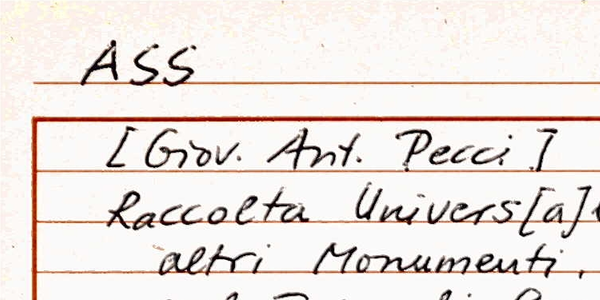 ASS
[Giov. Ant. Pecci]
Raccolta Univers[a]
altri Monumenti,